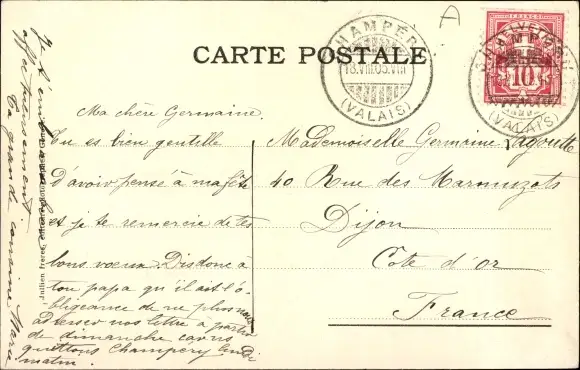 CARTE POSTALE
CHAMPÉRY
18.VIII.05.VIII
(VALAIS)
FRANCO
10
CHAMPÉRY
(VALAIS)
A
Ma chère Germaine,
Tu es bien gentille
d'avoir pensé à ma fête
et je te remercie de tes
bons vœux. Dis donc à
ton papa qu'il ait l'o-
bligeance de ne plus nous
adresser nos lettre à partir
de dimanche car nous
quittons Champéry lundi
matin.
Je t'em
affectueusement
Ta grande cousine Mara
Jullien frères,
Mademoiselle Germaine Lagoutte
40 Rue des Marmuzots
Dijon
Cote d'or
France